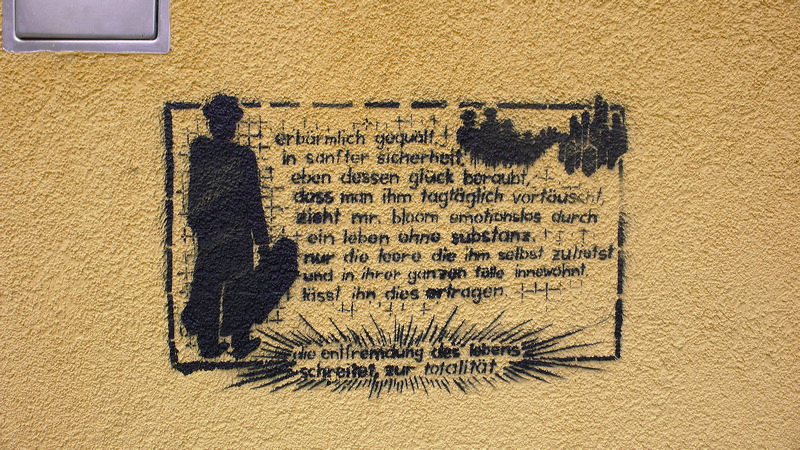 erbärmlich gequält,
in sanfter sicherheit,
eben dessen glück beraubt,
dass man ihm tagtäglich vortäuscht,
zieht mr. bloom emotionslos durch
ein leben ohne substanz.
nur die leere die ihm selbst zuletzt
und in ihrer ganzen fülle innewohnt,
lässt ihn dies ertragen.
die entfremdung des lebens
schreitet zur totalität.